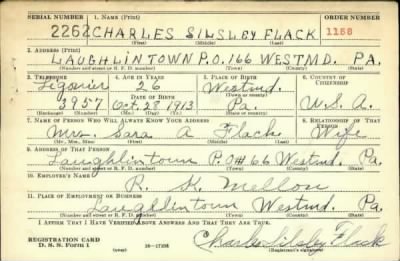 SERIAL NUMBER 1. NAME (Print) ORDER NUMBER
2262 CHARLES SILSLEY FLACK 1158
(First) (Middle) (Last)
2. ADDRESS (Print)
LAUGHLINTOWN P.O. 166 WESTMD. PA.
(Number and street or R. F. D. number) (Town) (County) (State)
3. TELEPHONE 4. AGE IN YEARS 5. PLACE OF BIRTH 6. COUNTRY OF CITIZENSHIP
Ligonier 26 Westmd.
DATE OF BIRTH
3957 Oct. 28 1913 Pa. U.S.A.
(Exchange) (Number) (Mo.) (Day) (Yr.) (State or country)
7. NAME OF PERSON WHO WILL ALWAYS KNOW YOUR ADDRESS 8. RELATIONSHIP OF THAT PERSON
Mrs. Sara A Flack Wife
(Mr., Mrs., Miss) (First) (Middle) (Last)
9. ADDRESS OF THAT PERSON
Laughlintown P.O #66 Westmd. Pa.
(Number and street or R. F. D. number) (Town) (County) (State)
10. EMPLOYER'S NAME
R. K. Mellon
11. PLACE OF EMPLOYMENT OR BUSINESS
Laughlintown Westmd. Pa.
(Number and street or R. F. D. number) (Town) (County) (State)
I AFFIRM THAT I HAVE VERIFIED ABOVE ANSWERS AND THAT THEY ARE TRUE.
REGISTRATION CARD
D. S. S. Form 1 (over) 16—17105 Charles Silsley Flack